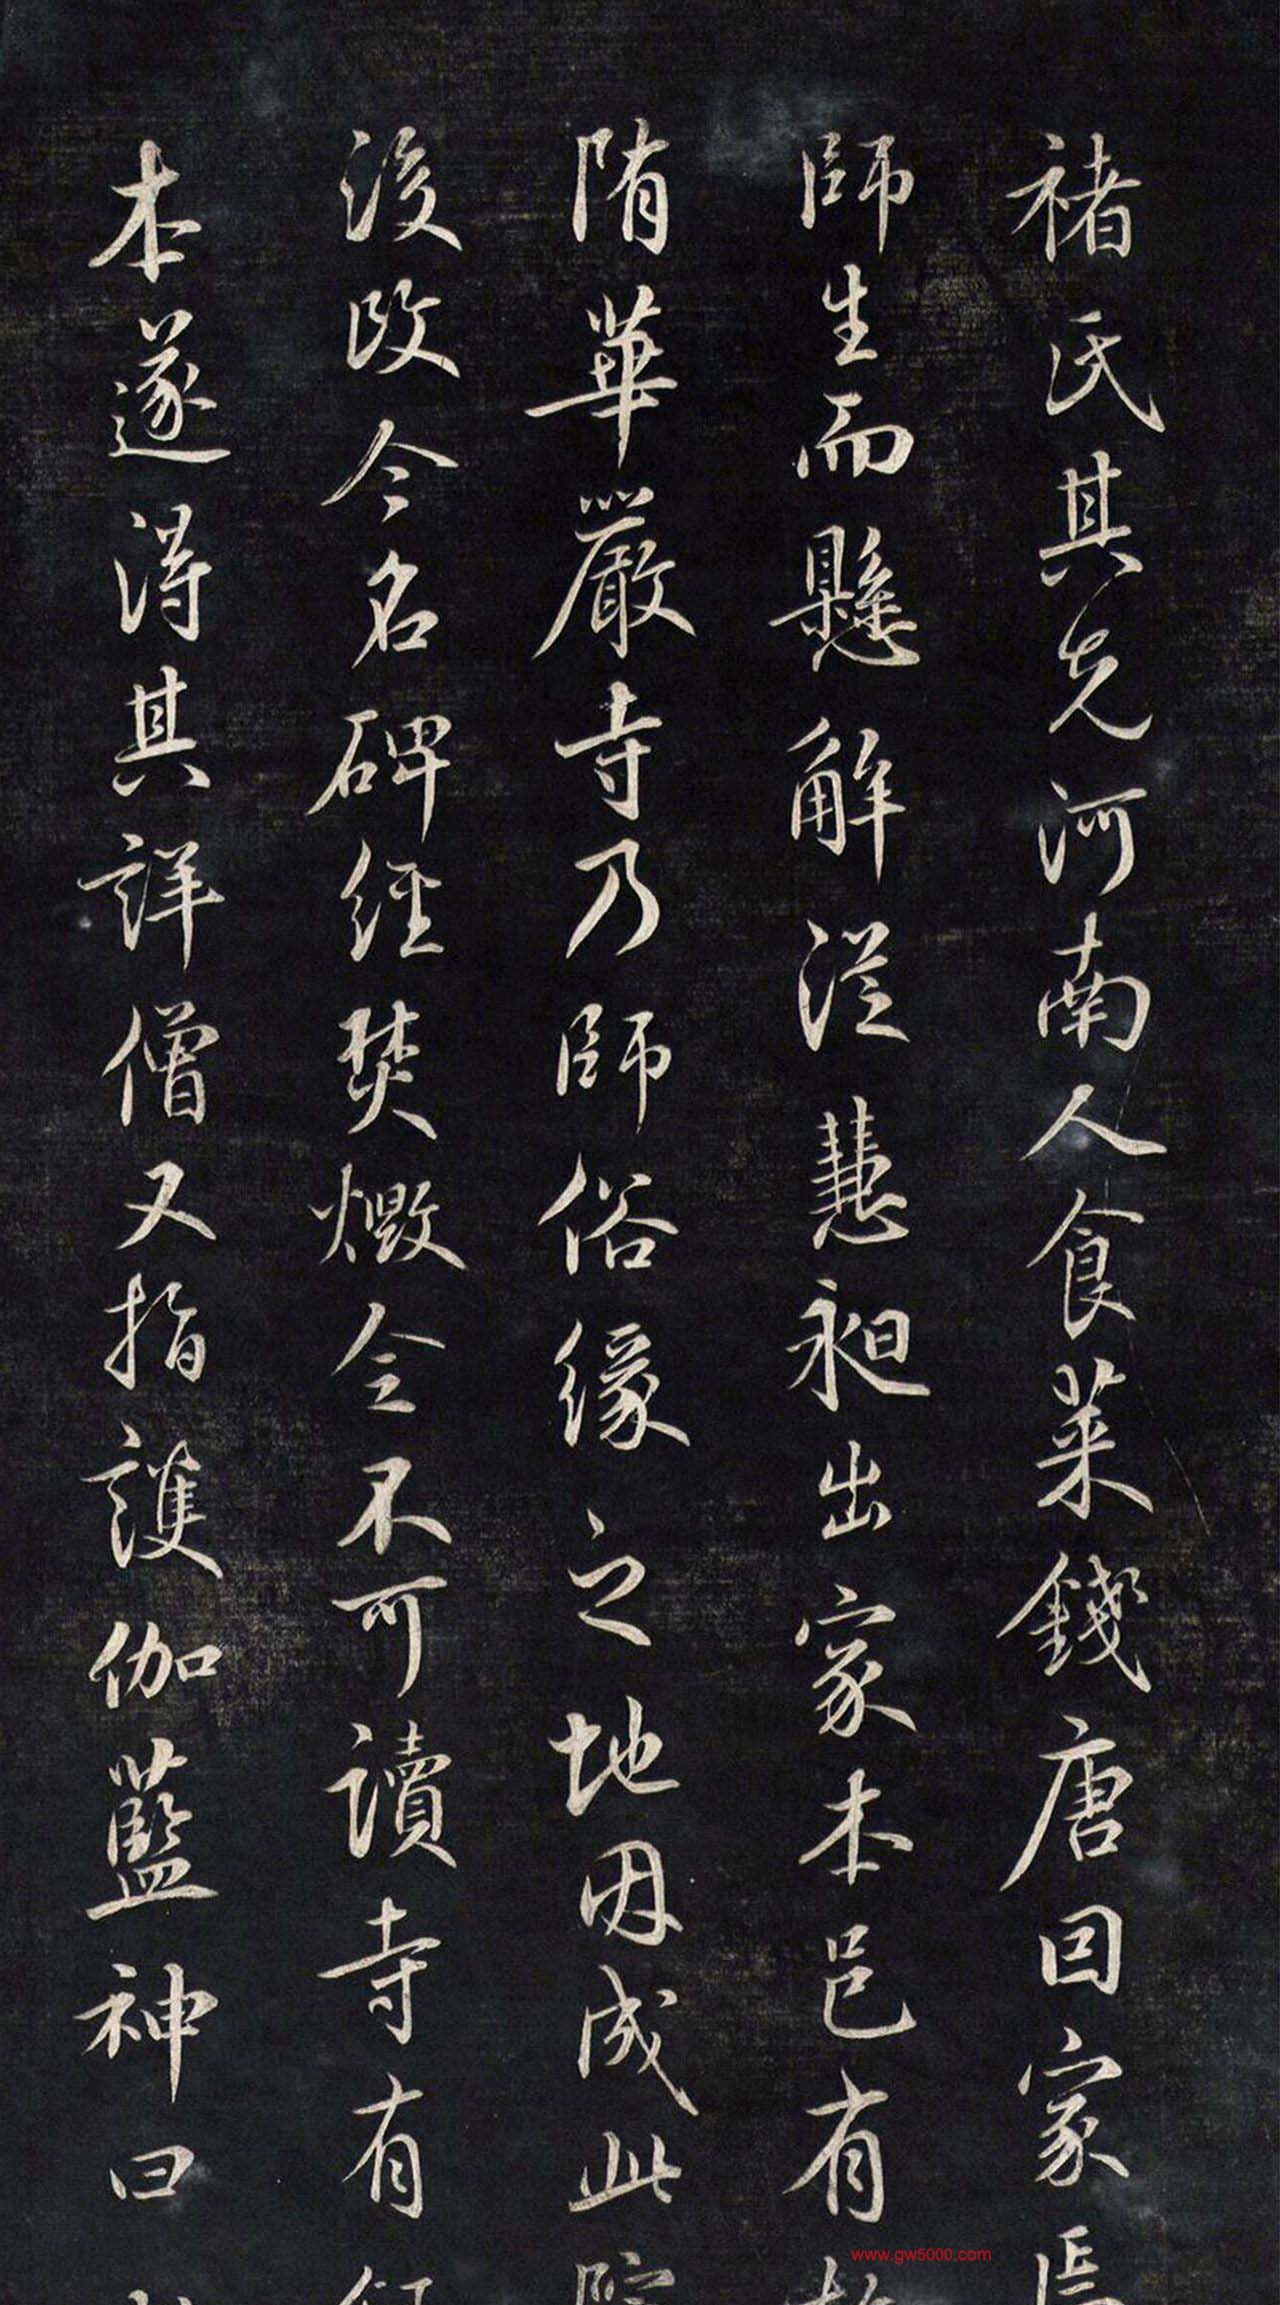 褚氏其先河南人食菜錢唐因家焉
師生而懸解從慧昶出家本邑有
隋華嚴寺乃師俗緣之地因成此院
後改今名碑經焚燬今不可讀寺有
本遂得其詳僧又指護伽藍神曰
www.gw5000.com